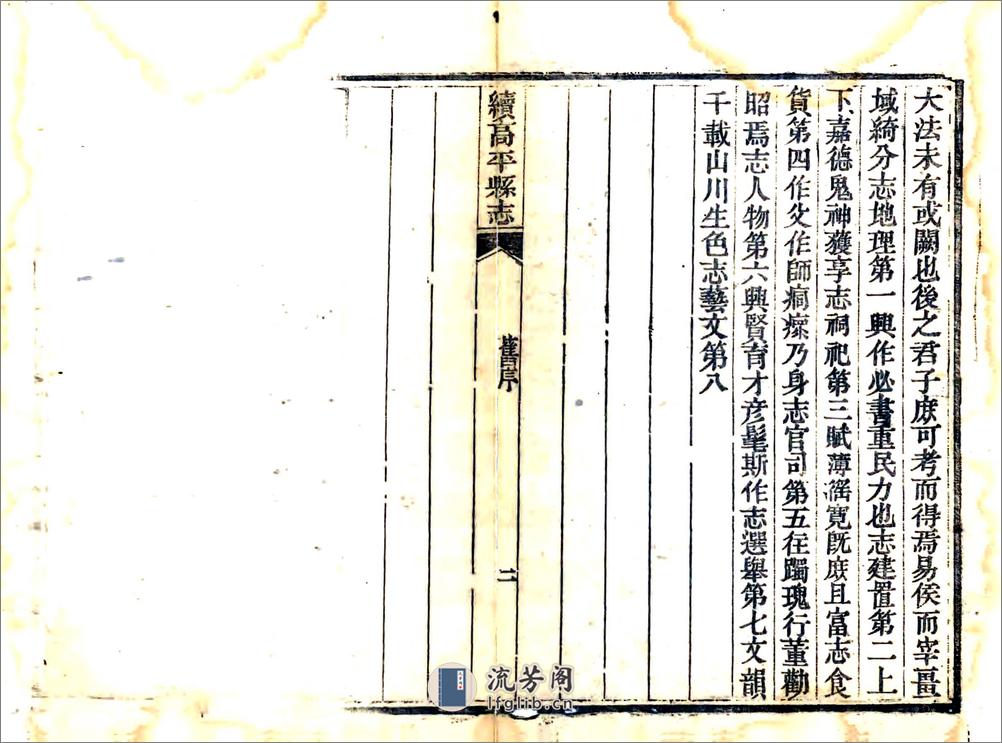 大法未有或闕也後之君子庶可考而得焉易侯而宰畺
域綺分志地理第一興作必書重民力也志建置第二上
下嘉德鬼神蒦享志祠祀第三賦薄徭寬既庶且富志食
貨第四作父作師痌瘝乃身志官司第五往躅瑰行董勸
昭焉志人物第六興賢育才彦髦斯作志選舉第七文韻
千載山川生色志藝文第八
續高平縣志
舊序
二
流芳阁
lfglib.cn